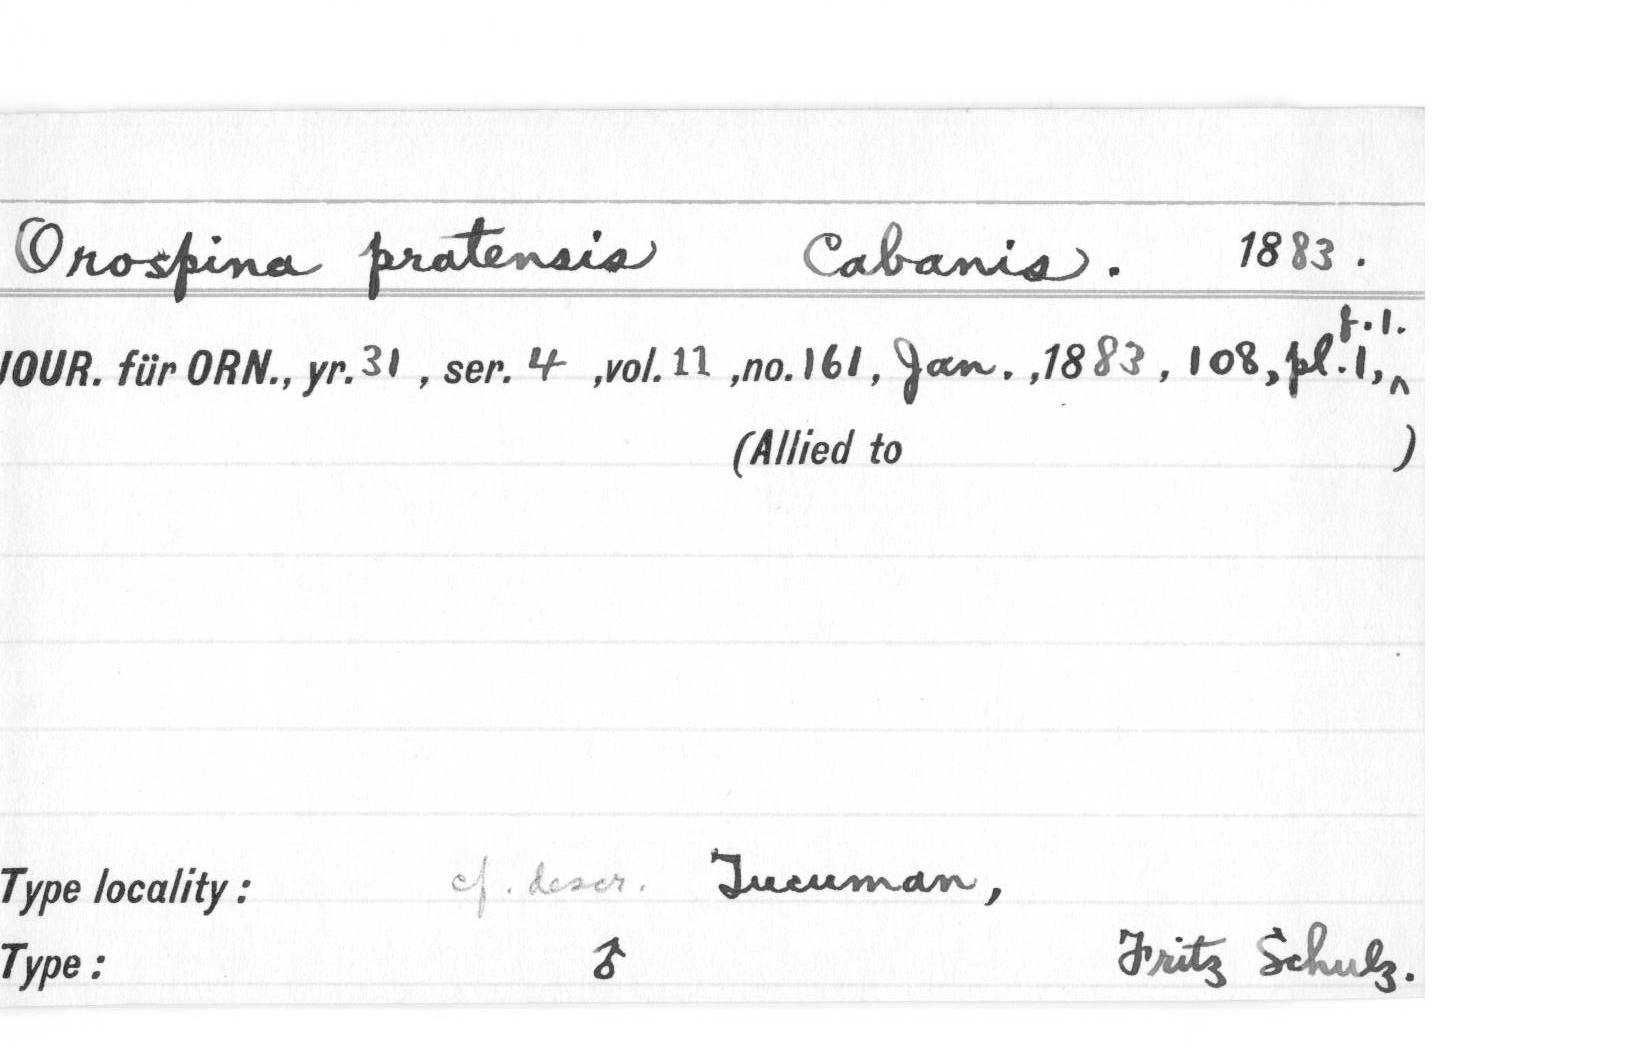 Orospina pratensis Cabanis. 1883.
JOUR. für ORN., yr. 31, ser. 4, vol. 11, no. 161, Jan., 1883, 108, pl. 1, ^ f. 1.
(Allied to )
Type locality: cf. descr. Tucuman,
Type: ♂ Fritz Schulz.